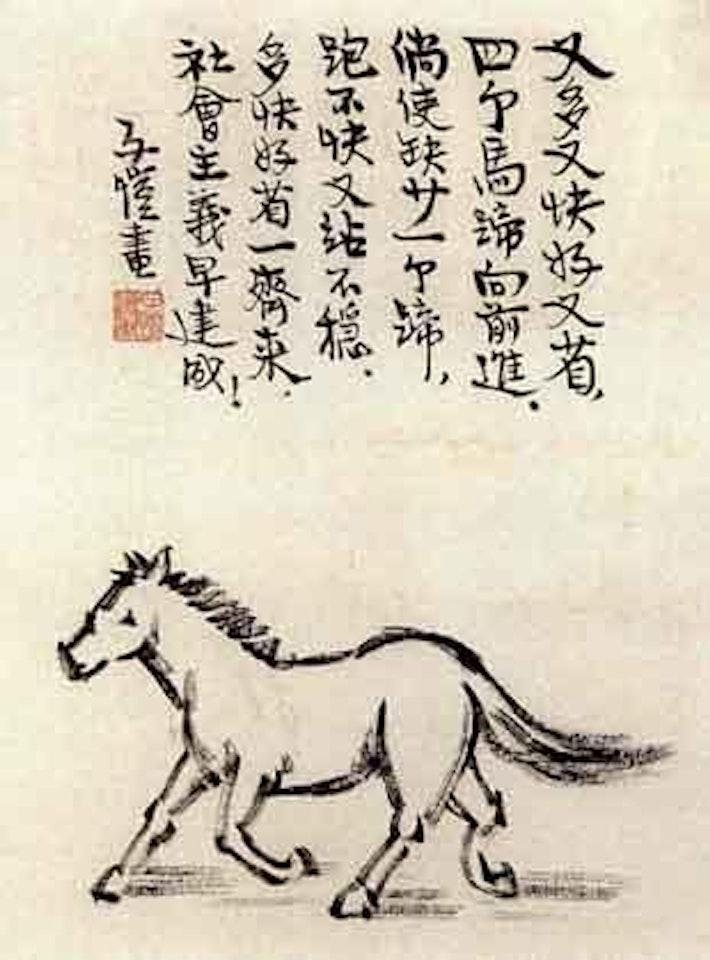 又多又快好又省，
四个馬蹄向前進．
倘使缺廿一个蹄，
跑不快又站不穩．
多快好省一齊来．
社會主義早建成！
子愷畫